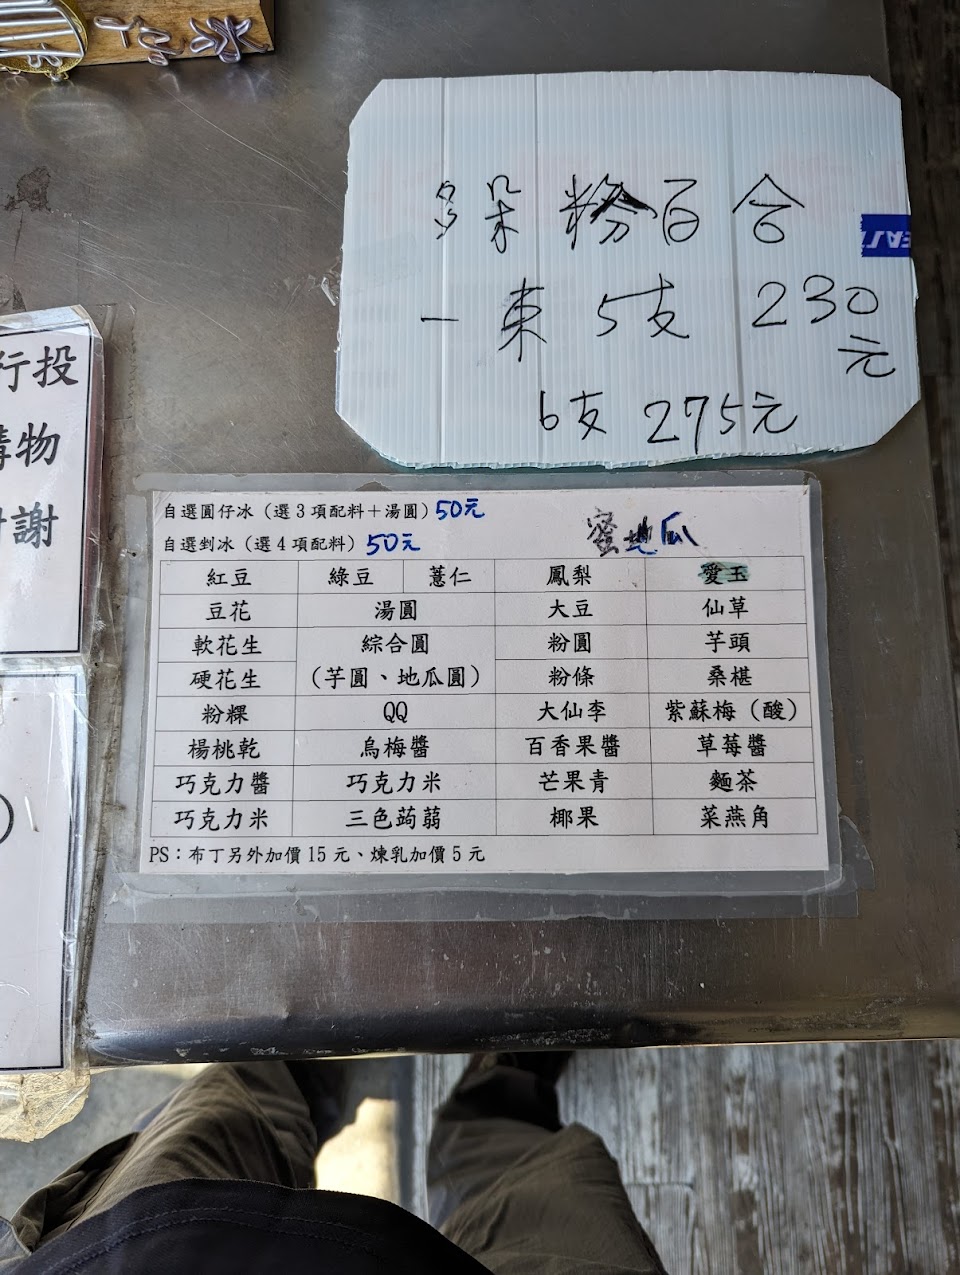 冰
行投
購物
謝
多朵粉百合
一束5支 230
元
6支 275元
EAS
自選圓仔冰（選3項配料＋湯圓）50元
自選剉冰（選4項配料）50元
蜜地瓜
紅豆 綠豆 薏仁 鳳梨 愛玉
豆花 湯圓 大豆 仙草
軟花生 綜合圓 粉圓 芋頭
硬花生 （芋圓、地瓜圓） 粉條 桑椹
粉粿 QQ 大仙李 紫蘇梅（酸）
楊桃乾 烏梅醬 百香果醬 草莓醬
巧克力醬 巧克力米 芒果青 麵茶
巧克力米 三色蒟蒻 椰果 菜燕角
PS：布丁另外加價15元、煉乳加價5元